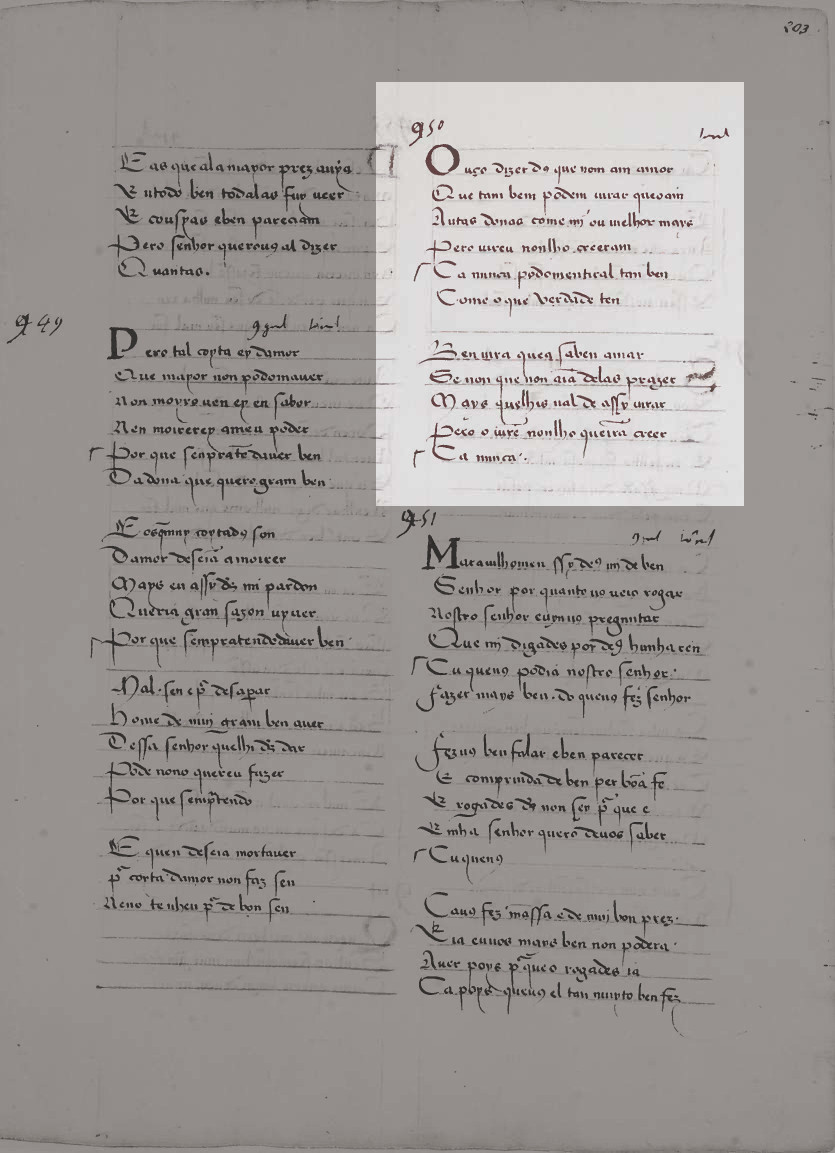 203
E as que ala mayor prez auya
E utodo ben todalas fuy ueer
E cousyas eben pareciam
Pero senhor querouꝯ al dizer
Quantas.
949
Pero tal coyta ey damor
Que mayor non podomauer
Non moyro uen ey en sabor
Nen moirerey ameu poder
Por que senpratēdauer ben
Dadona que quero gram ben
E os q̄mny coytadꝯ son
Damor deseiā a moirer
Mays eu assy ds̄ mi pardon
Queria gran sazon uyuer
Por que sempratendodauer ben
Mal sen e p̄ desaspar
home de muj gram ben auer
Dessa senhor quelhi ds̄ dar
Pode nono quereu fazer
Por que semp̄tendo
E quen deseia mortauer
p̄ coyta damor non faz sen
Neno tenheu p̄ de bon sen
950
Ouço dizer dꝯ que nom am amor
Que tam bem podem uiuar queo am
Autas donas come mj ou melhor mays
Pero uireu nonlho creeram
Ca nunca podomentical tan ben
Come o que verdade ten
Ben uira queꝯ saben amar
Se non que non aiā delas prazer
Mays quelhis ual de assy uirar
Pero o iurē nonlho queirā creer
Ca nunca.
951
Marauilhomen ssy deꝯ mj de ben
Senhor por quanto uo ueio rogar
Nostro senhor euynuꝯ preguntar
Que mj digades por deꝯ hunha ren
Cu quenꝯ podia nostro senhor
fazer mays ben. do quenꝯ fez senhor
fezuꝯ ben falar eben parecer
E comprīda de ben per bōa fe
E rogades ds̄ non sey p̄ que e
E mha senhor quero deuos saber
Cu quenꝯ
Cauꝯ fez massa e de muj bon prez
E ia enuos mays ben non podera
Auer poys p̄ queo rogades ia
Ca poys queuꝯ el tan muyto ben fez